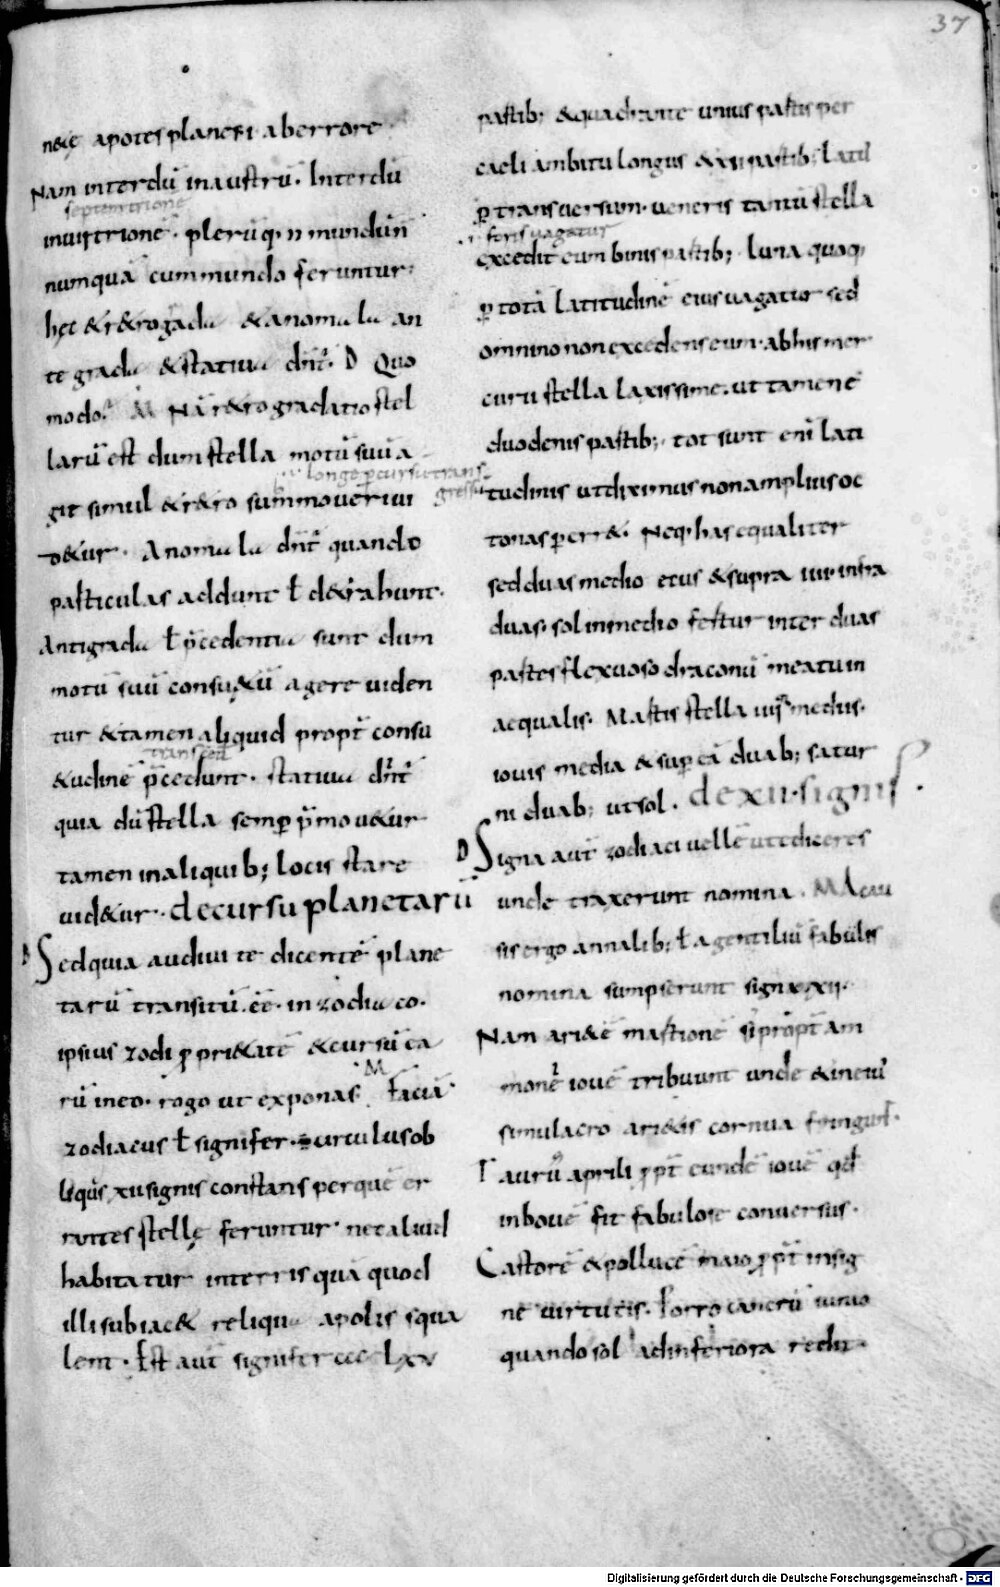 37
nece apotesplanesi aberrore
Nam interdū inaustrū. Interdū
septemtrione
plerūq; ñ mundūñ
numquā cummundo feruntur
hec &r&rogada &anomala an
te grada &statiua dñr. D Quo
modo. M Nā r&rogradatio stel
larū est dum stella motū suū a
longe pcursu trans
gressū
git simul &r&ro summoueri ui
d&ur. Anomala dñr quando
particulas addunt ł d&rahunt.
Antigrada ł pcedentia sunt dum
motū suū consu&ū agere uiden
tur &tamen aliquid propt consu
&udinē pcedunt. statiua dñr
quia dū stella semp mou&ur
tamen inaliquib; locis stare
uid&ur. decursu planetarū
D Sedquia audiui te dicentē plane
tarū transitū ēē. in zodiaco.
ipsius zodi ppri&atē &cursū ea
M
rū ineo. rogo ut exponas. faciā
zodiacus ł signifer. circulusob
liquus xii signis constans perquē er
rantes stelle feruntur. nec aliud
habitatur interris quā quod
illi subiac& reliqua apolis squa
lent. Est aut signifer ccc lxv
partib; &quadrante unius partis per
caeli ambitu longus &xii partib; latū
p transuersum. ueneris tantū stella
.i. foris uagatur
excedit eum binis partib; luna quoq;
p totā latitudinē eius uagatur sed
omnino non excedens eum. abhis mer
curii stella laxissime. ut tamen ē
duodenis partib; tot sunt enī lati
tudinis utdiximus non amplius oc
tonas perr&. Neq; has equaliter
sed duas medio eius &supra iiii. infra
duas. sol inmedio fertur inter duas
partes flexuoso draconū meatu in
aequalis. Martis stella medius.
iouis media &sup eā duab; satur
ni duab; ut sol. dexii. signis.
D Signa aut zodiaci uellē ut diceres
unde traxerunt nomina. M A cau
sis ergo annalib; ł agentiliū fabulis
nomina sumpserunt signa xii.
Nam ari&ē martionē propt am
monē iouē tribuunt unde &ineiu
simulacro ari&is cornua fingunt.
Taurū aprili ppt eundē iouē qd
inbouē fit fabulose conuersus.
Castorē &pollucē maio ppt insig
ne uirtutis. Porro cancrū iunio
quando sol adinferiora redit.
Digitalisierung gefördert durch die Deutsche Forschungsgemeinschaft - DFG